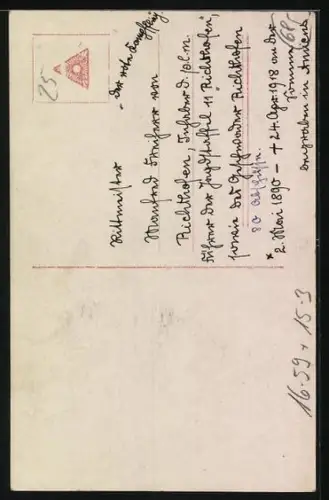 Rittmeister
"Der rote Kampfflieger"
Manfred Freiherr von
Richthofen, Inhaber d. p.l.m.
Führer der Jagdstaffel 11 "Richthofen",
sowie des Geschwader Richthofen
80 Abschüsse.
* 2. Mai 1890 - + 24. Apr. 1918 an der
Somme
begraben in Amiens
25
68/
16.59 + 15.3